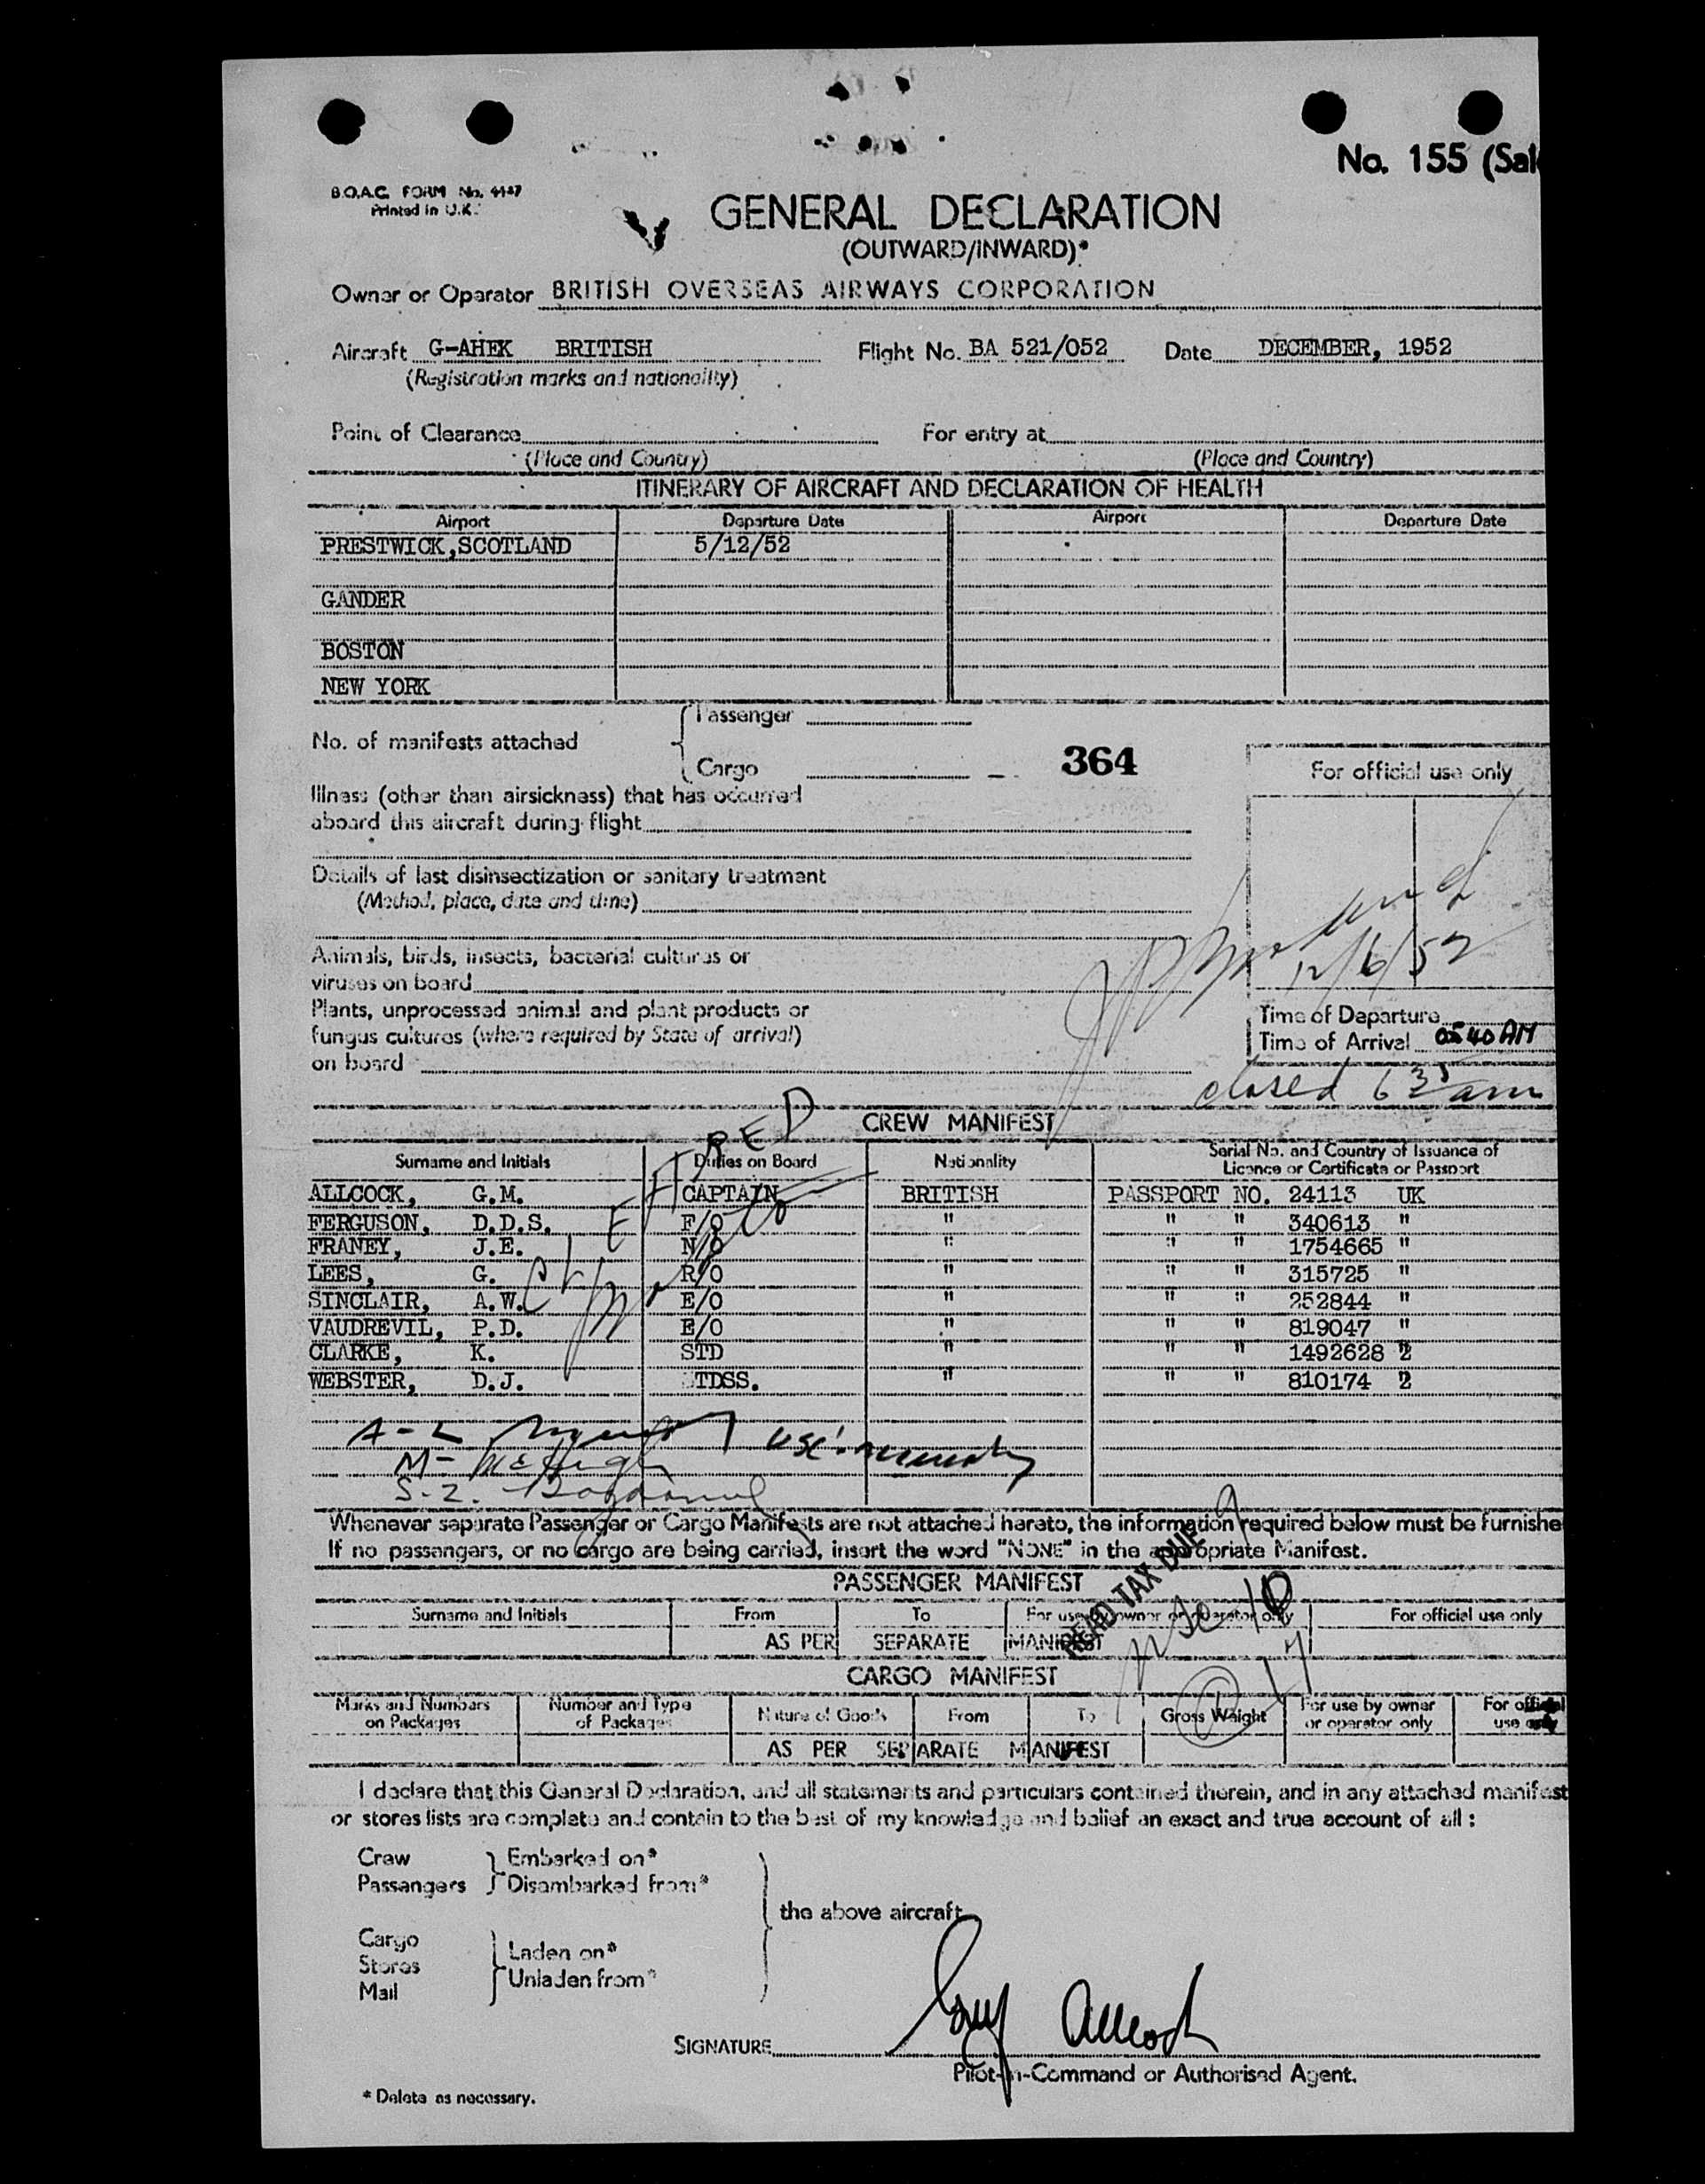 No. 155 (Sal
B.O.A.C. FORM No. 4147
Printed in U.K.
GENERAL DECLARATION
(OUTWARD/INWARD)*
Owner or Operator BRITISH OVERSEAS AIRWAYS CORPORATION
Aircraft G-AHEK BRITISH Flight No. BA 521/052 Date DECEMBER, 1952
(Registration marks and nationality)
Point of Clearance For entry at
(Place and Country) (Place and Country)
ITINERARY OF AIRCRAFT AND DECLARATION OF HEALTH
Airport Departure Date Airport Departure Date
PRESTWICK,SCOTLAND 5/12/52
GANDER
BOSTON
NEW YORK
Passenger
No. of manifests attached
Cargo 364
For official use only
Illness (other than airsickness) that has occurred
aboard this aircraft during flight
Details of last disinsectization or sanitary treatment
(Method, place, date and time)
12/6/52
Animals, birds, insects, bacterial cultures or
viruses on board
Plants, unprocessed animal and plant products or
fungus cultures (where required by State of arrival)
on board
Time of Departure
Time of Arrival 0540 AM
closed 6 35 am
CREW MANIFEST
Surname and Initials Duties on Board Nationality Serial No. and Country of Issuance of Licence or Certificate or Passport
ALLCOCK, G.M. CAPTAIN BRITISH PASSPORT NO. 24113 UK
FERGUSON, D.D.S. F/O " " " 340613 "
FRANEY, J.E. N/O " " " 1754665 "
LEES, G. R/O " " " 315725 "
SINCLAIR, A.W. E/O " " " 252844 "
VAUDREVIL, P.D. E/O " " " 819047 "
CLARKE, K. STD " " " 1492628 2
WEBSTER, D.J. STDSS. " " " 810174 2
A-L
M-
S-Z.
Whenever separate Passenger or Cargo Manifests are not attached hereto, the information required below must be furnishe
If no passengers, or no cargo are being carried, insert the word "NONE" in the appropriate Manifest.
HEAD TAX DUE 9
PASSENGER MANIFEST
Surname and Initials From To For use by owner or operator only For official use only
AS PER SEPARATE MANIFEST
CARGO MANIFEST
Marks and Numbers on Packages Number and Type of Packages Nature of Goods From To Gross Weight For use by owner or operator only For official use only
AS PER SEPARATE MANIFEST
I declare that this General Declaration, and all statements and particulars contained therein, and in any attached manifest
or stores lists are complete and contain to the best of my knowledge and belief an exact and true account of all :
Crew Embarked on*
Passengers Disembarked from*
the above aircraft
Cargo
Stores Laden on*
Mail Unladen from*
SIGNATURE Guy Allcock
Pilot-in-Command or Authorised Agent.
* Delete as necessary.